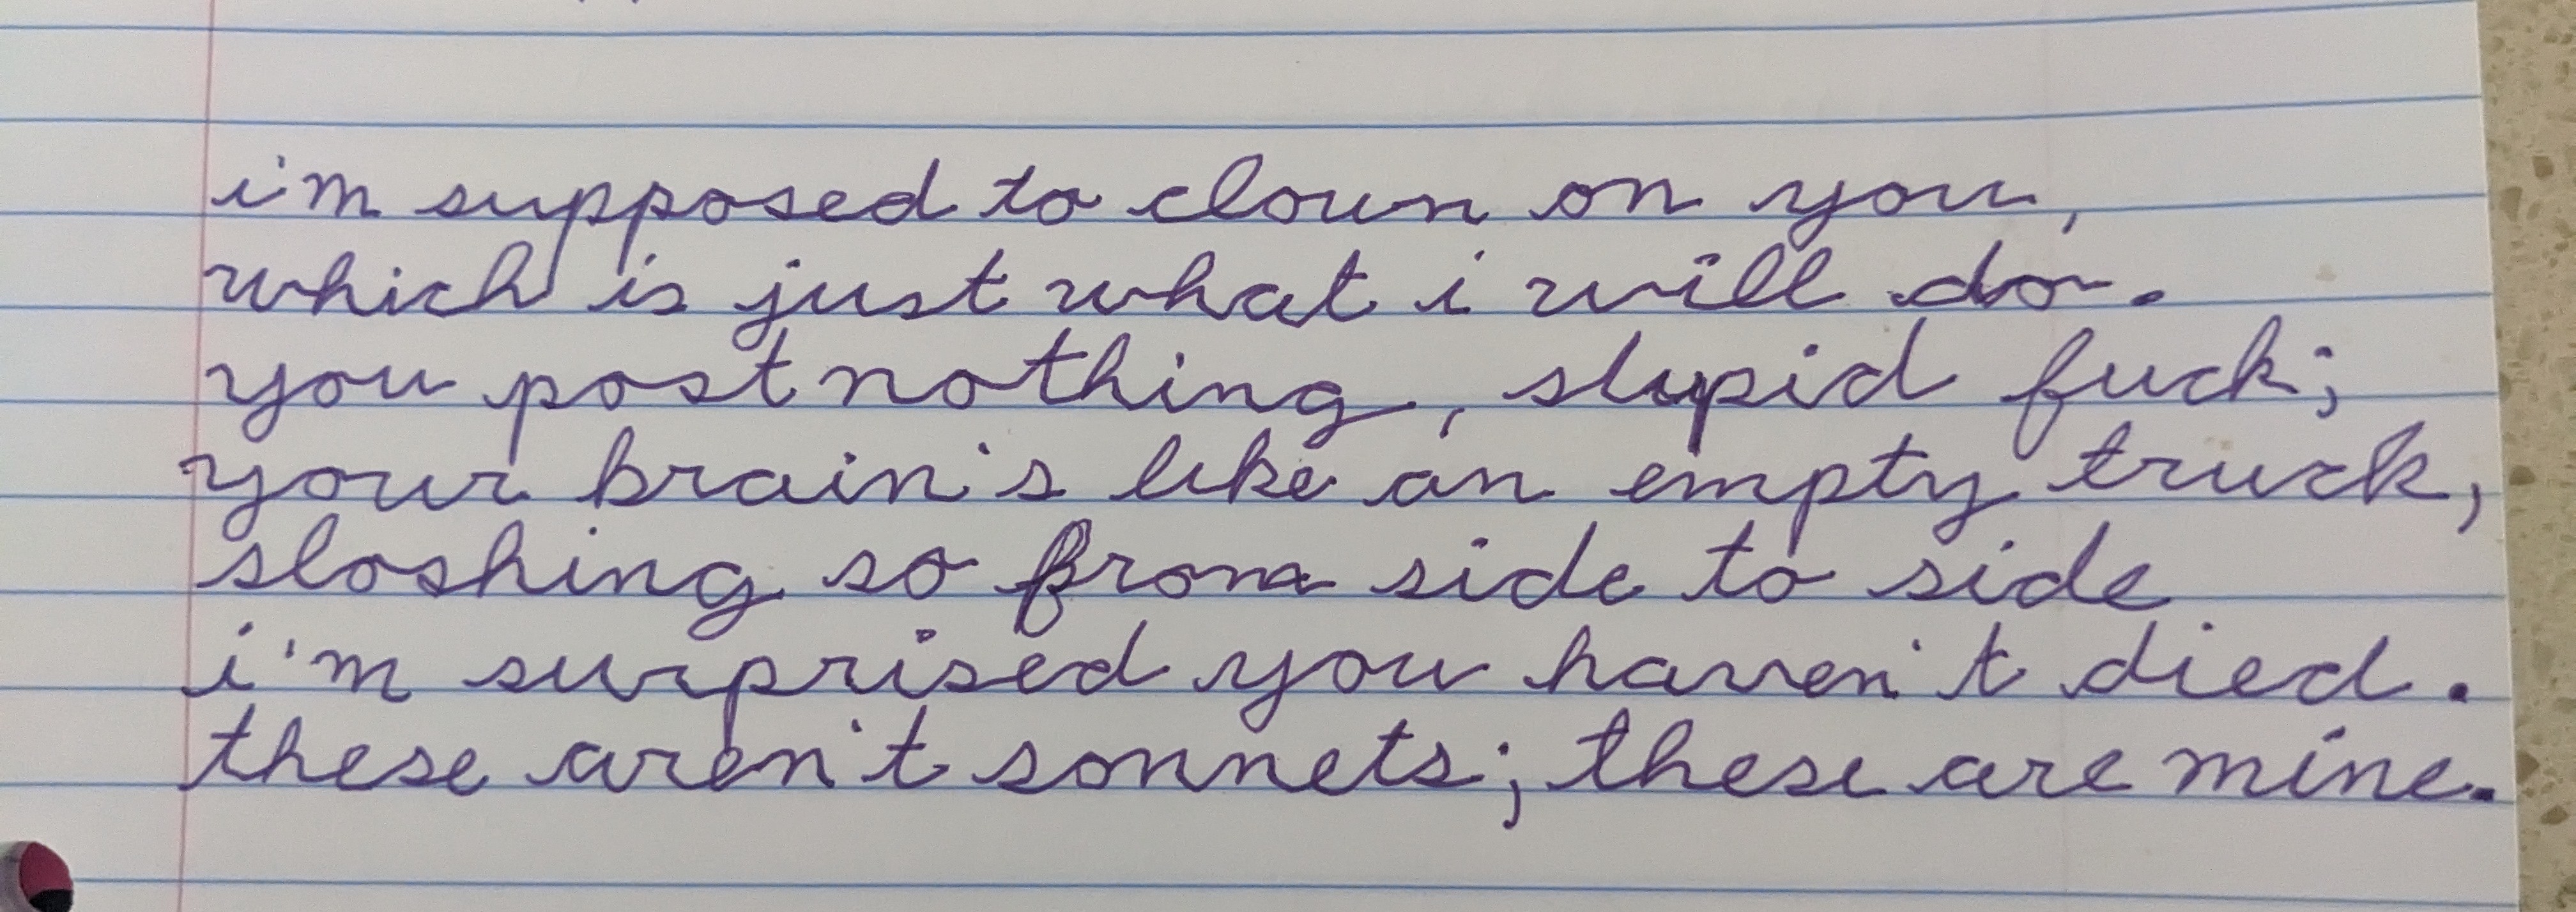 i'm supposed to clown on you,
which is just what i will do.
you post nothing, stupid fuck;
your brain's like an empty truck,
sloshing so from side to side
i'm surprised you haven't died.
these aren't sonnets; these are mine.